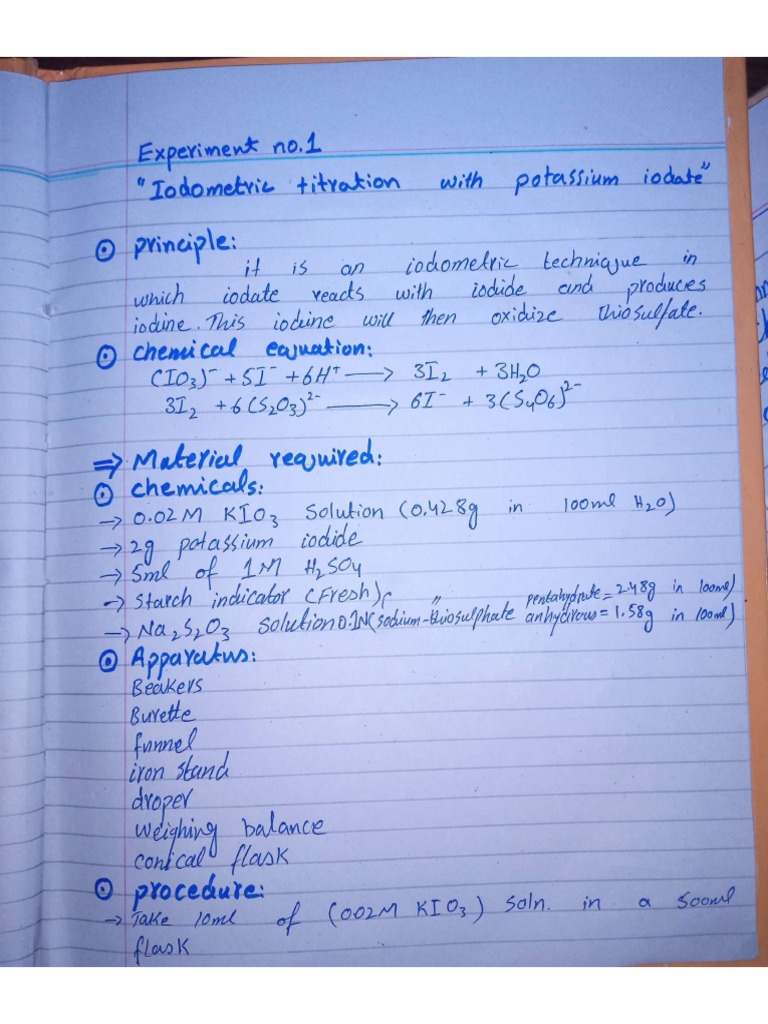 Experiment no.1
"Iodometric titration with potassium iodate"
⊙ principle:
it is an iodometric technique in
which iodate reacts with iodide and produces
iodine. This iodine will then oxidize thiosulfate.
⊙ chemical equation:
(IO₃)⁻ + 5I⁻ + 6H⁺ → 3I₂ + 3H₂O
3I₂ + 6(S₂O₃)²⁻ → 6I⁻ + 3(S₄O₆)²⁻
⇒ Material required:
⊙ chemicals:
→ 0.02M KIO₃ Solution (0.428g in 100ml H₂O)
→ 2g potassium iodide
→ 5ml of 1M H₂SO₄
→ Starch indicator (Fresh)
" pentahydrate = 2.48g in 100ml)
→ Na₂S₂O₃ Solution 0.1N (sodium-thiosulphate anhydirous = 1.58g in 100ml)
⊙ Apparatus:
Beakers
Burette
funnel
iron stand
droper
weighing balance
conical flask
⊙ procedure:
→ Take 10ml of (002M KIO₃) Soln. in a 500ml
flask